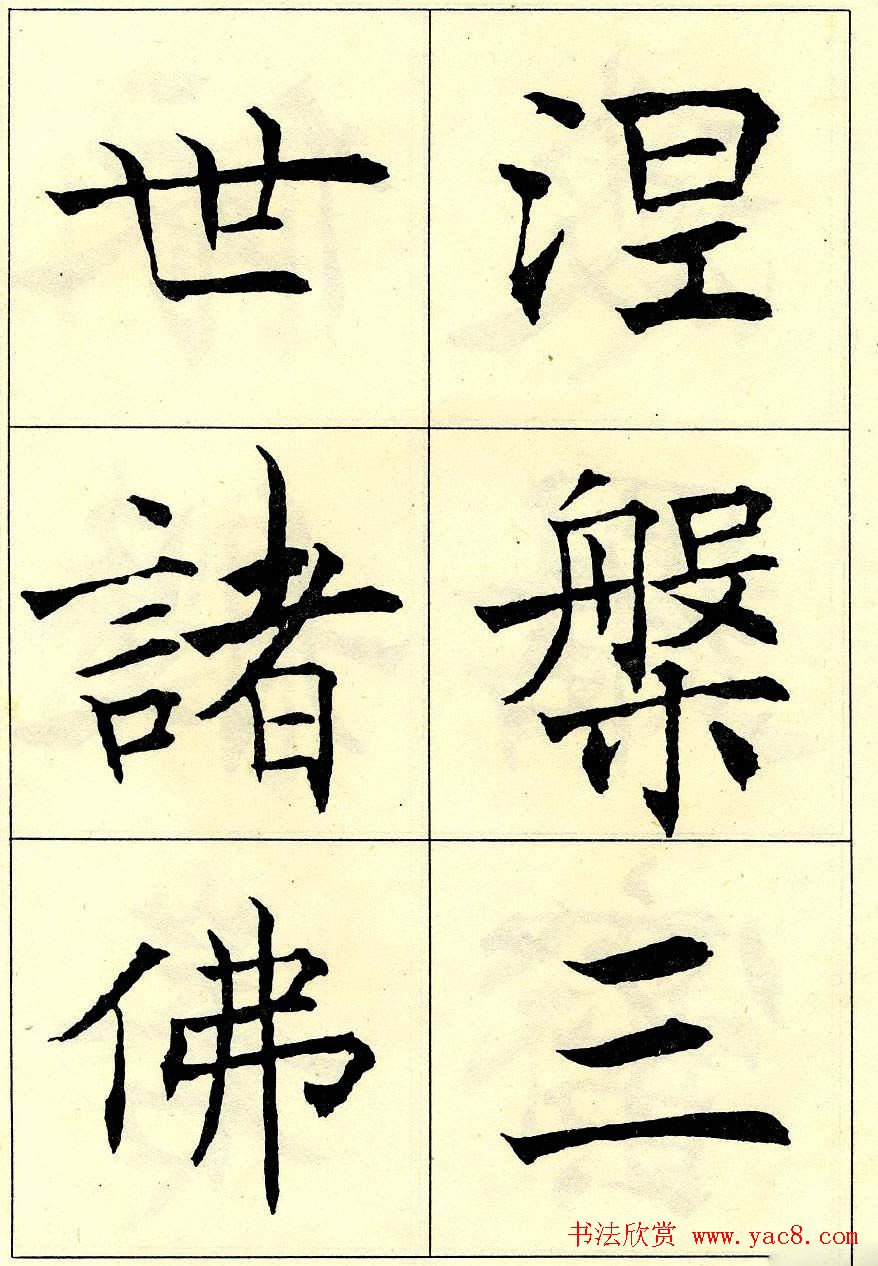 涅槃三
世諸佛
书法欣赏 www.yac8.com